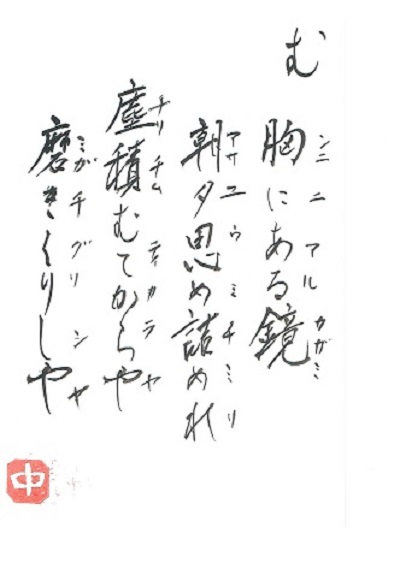 む
胸にある鏡
ンニニアルカガミ
朝夕思め詰めれ
アサユウミチミリ
塵積むてからや
チリチムティカラヤ
磨きくりしや
ミガチグリシャ
中